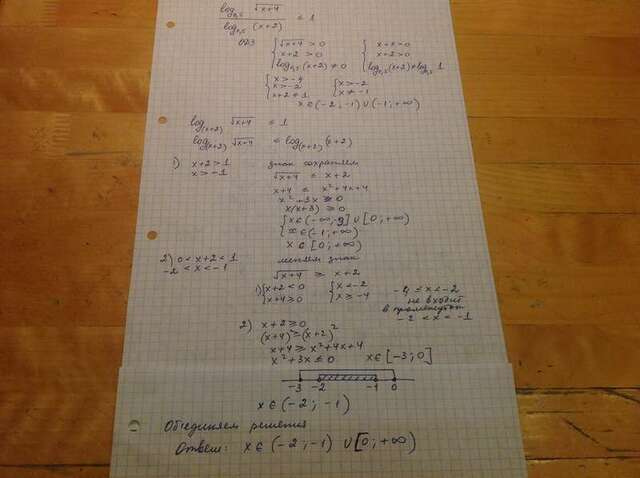 log₀,₅ √(x+4) / log₀,₅ (x+2) ≤ 1
ОДЗ { √(x+4) > 0 { x+4 > 0
x+2 > 0 x+2 > 0
log₀,₅ (x+2) ≠ 0 log₀,₅ (x+2) ≠ log₀,₅ 1
{ x > -4 { x > -2
x > -2 x ≠ -1
x+2 ≠ 1 x ∈ (-2; -1) ∪ (-1; +∞)
log₍ₓ₊₂₎ √(x+4) ≤ 1
log₍ₓ₊₂₎ √(x+4) ≤ log₍ₓ₊₂₎ (x+2)
1) x+2 > 1 знак сохраняем
x > -1 √(x+4) ≤ x+2
x+4 ≤ x²+4x+4
x²+3x ≥ 0
x(x+3) ≥ 0
{ x ∈ (-∞; -3] ∪ [0; +∞)
x ∈ (-1; +∞)
x ∈ [0; +∞)
2) 0 < x+2 < 1 меняем знак
-2 < x < -1 √(x+4) ≥ x+2
1) { x+2 < 0 { x < -2 -4 ≤ x < -2
x+4 ≥ 0 x ≥ -4 не входит
в промежуток
-2 < x < -1
2) x+2 ≥ 0
(x+4) ≥ (x+2)²
x+4 ≥ x²+4x+4
x²+3x ≤ 0 x ∈ [-3; 0]
-3 -2 -1 0
x ∈ (-2; -1)
Объединяем решения
Ответ: x ∈ (-2; -1) ∪ [0; +∞)